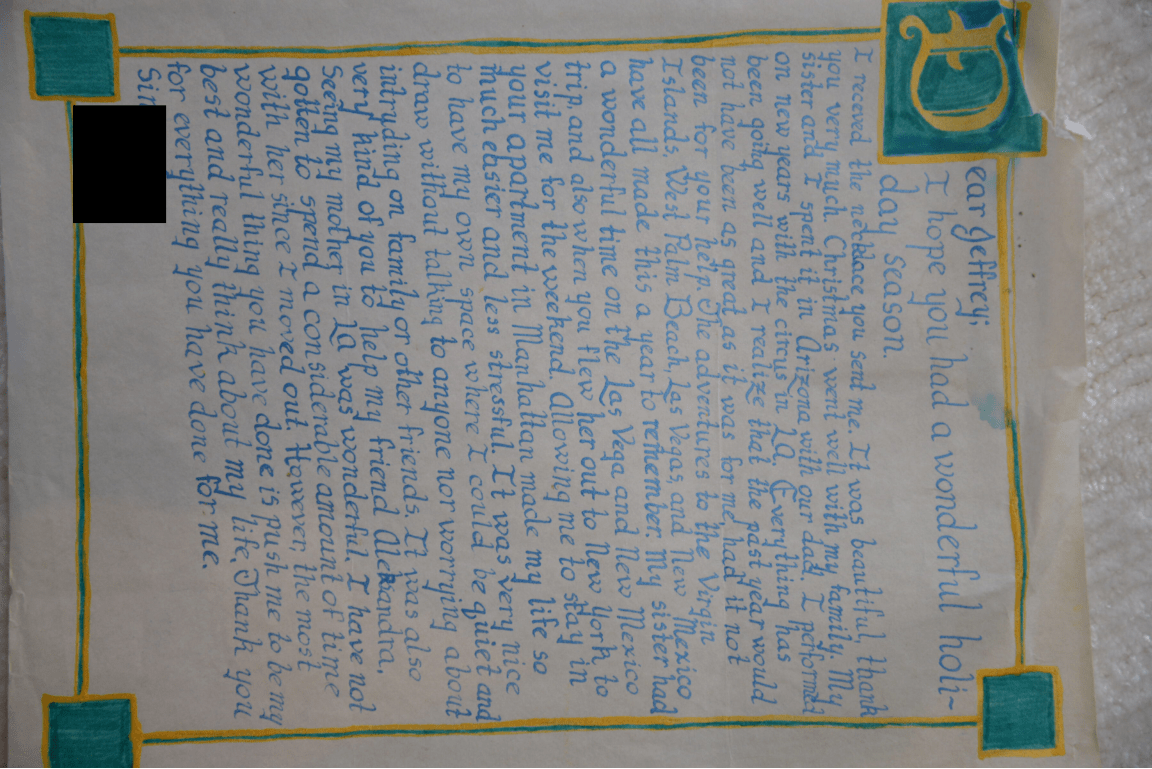 Dear Jeffrey;
I hope you had a wonderful holi~
day season.
I received the necklace you sent me. It was beautiful, thank
you very much. Christmas went well with my family. My
sister and I spent it in Arizona with our dad. I performed
on new years with the circus in LA. Everything has
been going well and I realize that the past year would
not have been as great as it was for me, had it not
been for your help. The adventures to the Virgin
Islands, West Palm Beach, Las Vegas, and New Mexico
have all made this a year to remember. My sister had
a wonderful time on the Las Vega and New Mexico
trip, and also when you flew her out to New York to
visit me for the weekend. Allowing me to stay in
your apartment in Manhattan made my life so
much easier and less stressful. It was very nice
to have my own space where I could be quiet and
draw without talking to anyone nor worrying about
intryding on family or other friends. It was also
very kind of you to help my friend Alexandra.
Seeing my mother in LA was wonderful. I have not
gotten to spend a considerable amount of time
with her since I moved out. However, the most
wonderful thing you have done is push me to be my
best and really think about my life. Thank you
for everything you have done for me.
Sin